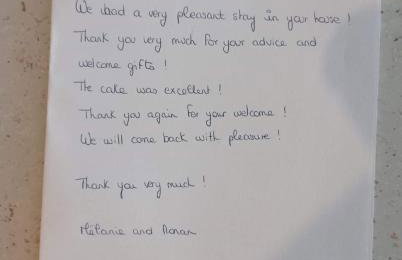 We had a very pleasant stay in your house !
Thank you very much for your advice and
welcome gifts !
The cake was excellent !
Thank you again for your welcome !
We will come back with pleasure !
Thank you very much !
Mélanie and Ronan